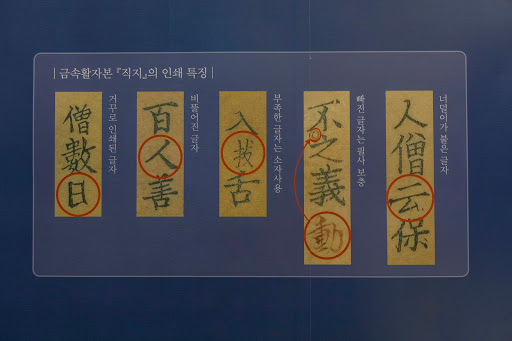 | 금속활자본 『직지』의 인쇄 특징 |
僧數日
거꾸로 인쇄된 글자
百人善
비뚤어진 글자
入拔舌
부족한 글자는 소자사용
不之義動
빠진 글자는 필사 보충
人僧云保
너덜이가 붙은 글자